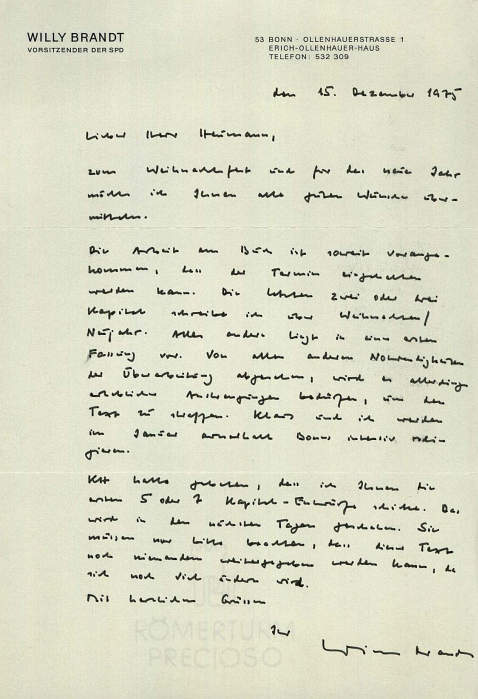 WILLY BRANDT
VORSITZENDER DER SPD
53 BONN · OLLENHAUERSTRASSE 1
ERICH-OLLENHAUER-HAUS
TELEFON: 532 309
den 15. Dezember 1975
Lieber Herr Neumann,
zum Weihnachtsfest und für das neue Jahr
möchte ich Ihnen alle guten Wünsche über-
mitteln.
Die Arbeit am Buch ist soweit vorange-
kommen, dass der Termin eingehalten
werden kann. Die letzten zwei oder drei
Kapitel schreibe ich über Weihnachten/
Neujahr. Alles andere liegt in einer ersten
Fassung vor. Von allen anderen Notwendigkeiten
der Überarbeitung abgesehen, wird es allerdings
erheblicher Anstrengungen bedürfen, um den
Text zu straffen. Klaus und ich werden
im Januar ausserhalb Bonns intensiv redi-
gieren.
KH hatte gebeten, dass ich Ihnen die
ersten 5 oder 7 Kapitel-Entwürfe schicke. Das
wird in den nächsten Tagen geschehen. Sie
müssen nur bitte beachten, dass dieser Text
noch niemandem weitergegeben werden kann, da
sich noch viel ändern wird.
Mit herzlichen Grüssen
Ihr
Willy Brandt
RÖMERTURM
PRECIOSO